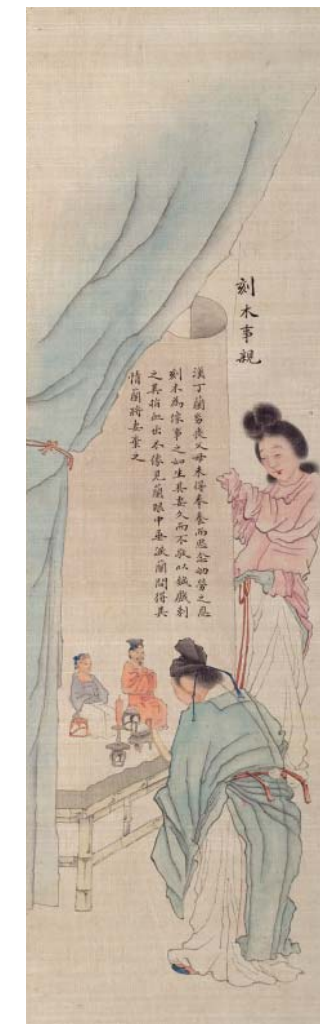 刻木事親
漢丁蘭㓜喪父母未得奉養而思念劬勞之恩
刻木為像事之如生其妻久而不敬以鍼戲刺
之其指血出木像見蘭眼中垂淚蘭問得其
情蘭將妻棄之